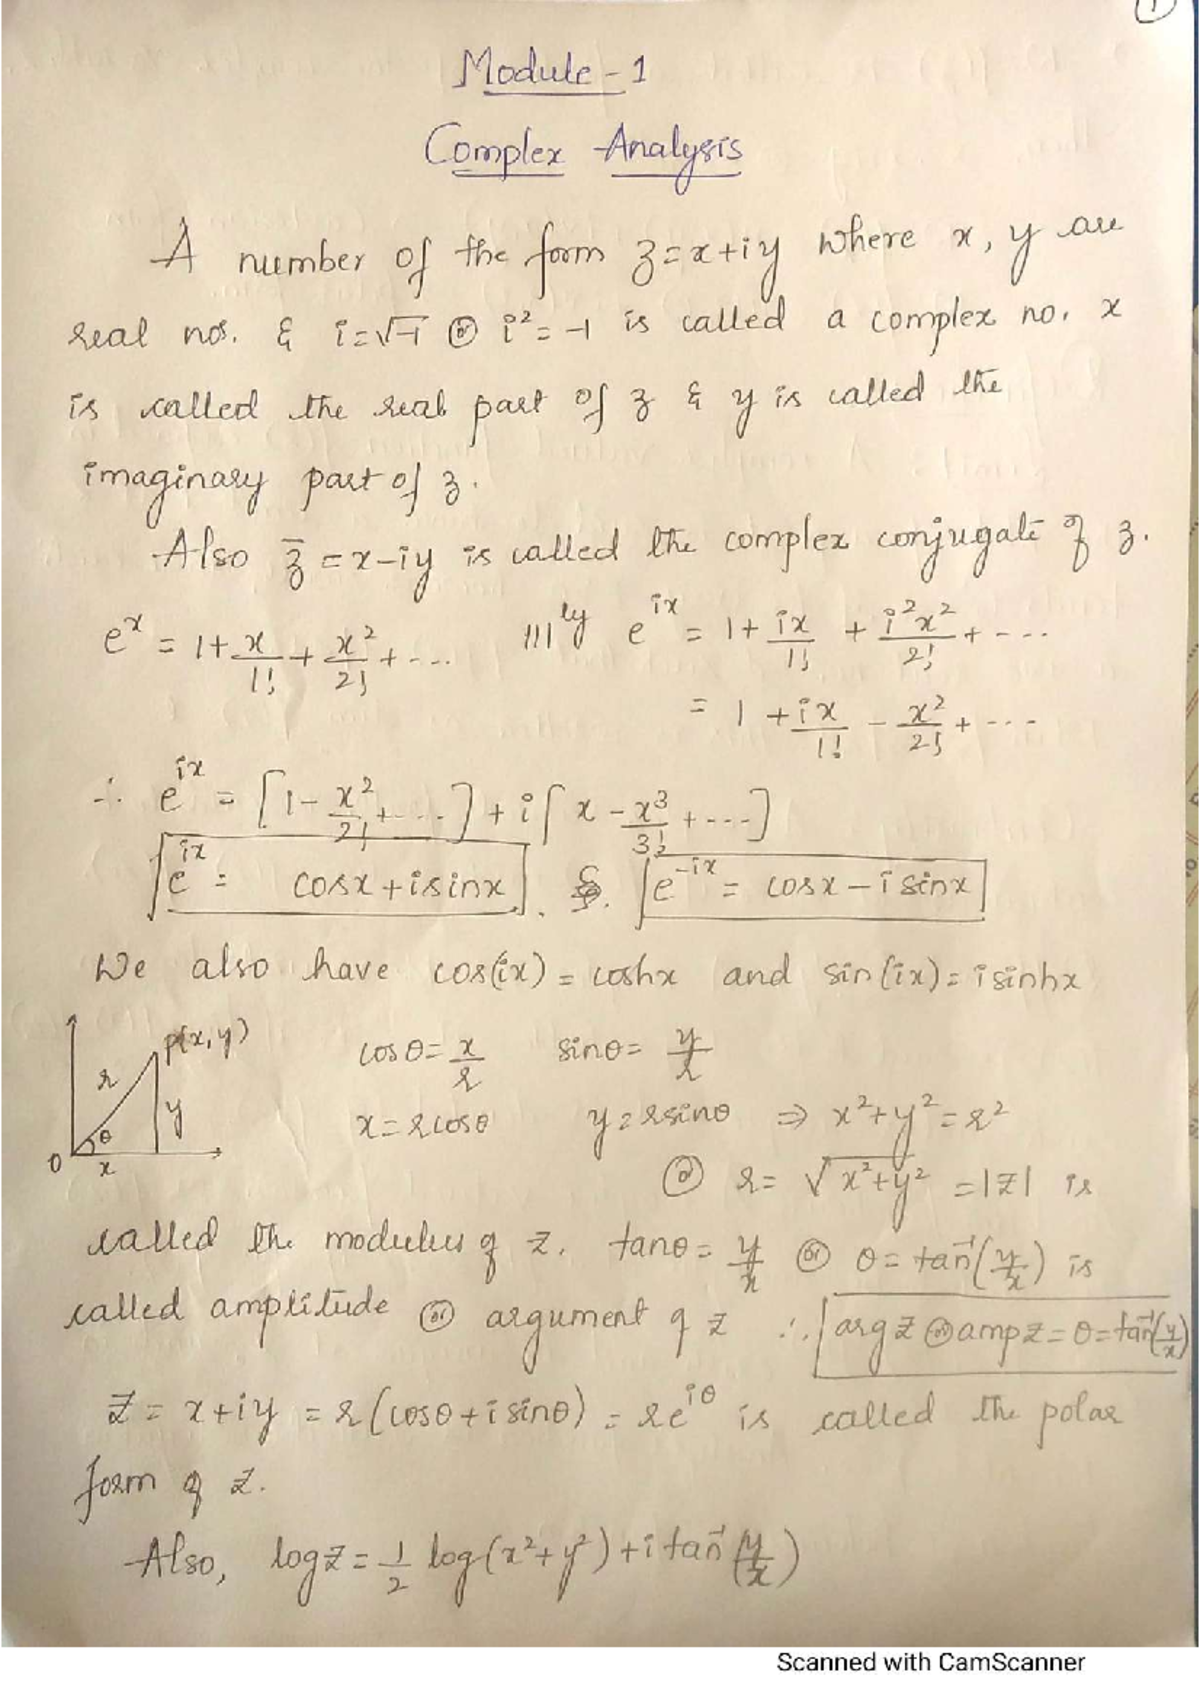 1
Module - 1
Complex Analysis
A number of the form z = x + iy where x, y are
real nos. & i = √-1 or i² = -1 is called a complex no. x
is called the real part of z & y is called the
imaginary part of z.
Also z̄ = x - iy is called the complex conjugate of z.
eˣ = 1 + x/1! + x²/2! + ... |||ly e^{ix} = 1 + ix/1! + i²x²/2! + - - - -
= 1 + ix/1! - x²/2! + - - - -
∴ e^{ix} = [1 - x²/2! + - - -] + i[x - x³/3! + - - -]
e^{ix} = cosx + isinx . &. e^{-ix} = cosx - i sinx
We also have cos(ix) = coshx and sin(ix) = isinhx
P(x, y) r y θ O x
cosθ = x/r sinθ = y/r
x = rcosθ y = rsinθ ⇒ x² + y² = r²
or r = √x²+y² = |z| is
called the modulus of z. tanθ = y/x or θ = tan⁻¹(y/x) is
called amplitude or argument of z ∴ arg z or amp z = θ = tan⁻¹(y/x)
z = x + iy = r(cosθ + i sinθ) = re^{iθ} is called the polar
form of z.
Also, logz = 1/2 log(x² + y²) + i tan⁻¹(y/x)
Scanned with CamScanner